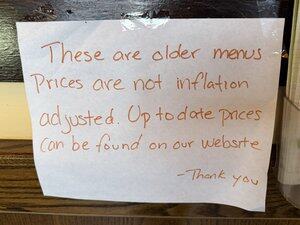 These are older menus
Prices are not inflation
adjusted. Up to date prices
can be found on our website
-Thank you